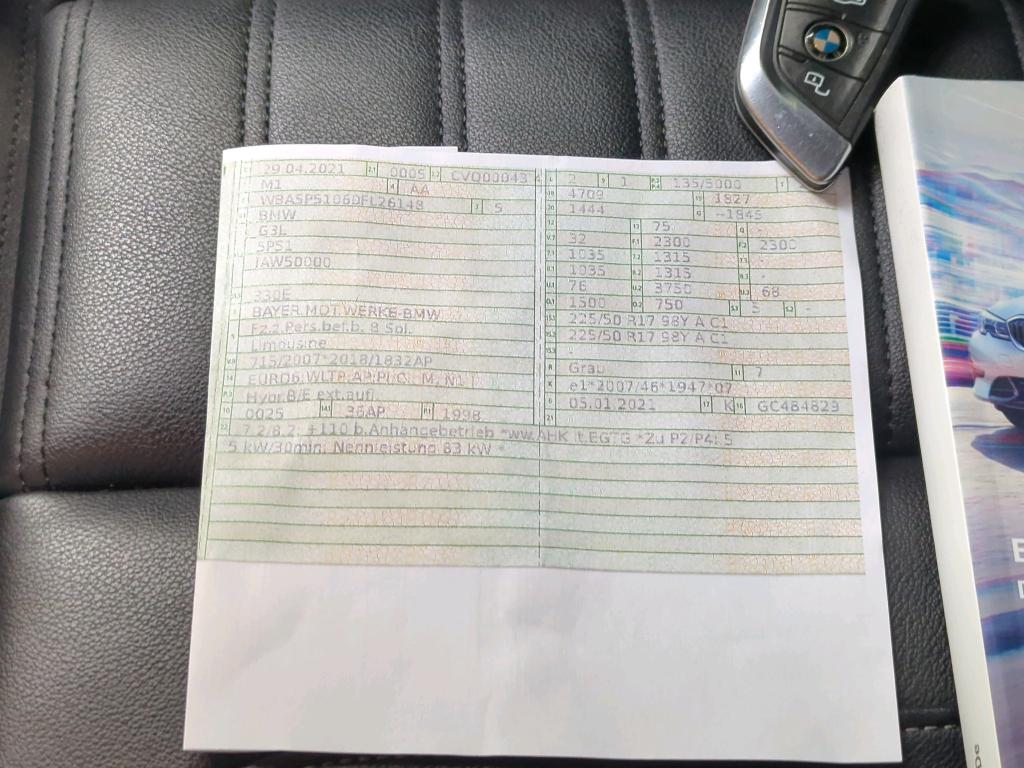 29.04.2021 0005 CVQ00043
M1 AA
WBA5P51060FL26148 5
BMW
G3L
5P51
JAW50000
330E
BAYER.MOT.WERKE-BMW
Fz.z.Pers.bef.b. 8 Spl.
Limousine
715/2007*2018/1832AP
EURO6 WLTP M, N1 I
Hybr.B/E ext.aufl.
0025 36AP 1998
2 1 135/5000
4709 1827
1444 -1845
75 -
32 2300 2300
1035 1315 -
1035 1315 -
76 3750 68
1500 750 5 -
225/50 R17 98Y A C1
225/50 R17 98Y A C1
-
Grau 7
e1*2007/46*1947*07
05.01.2021 K GC484829
7.2/8.2: +110 b.Anhängebetrieb *ww.AHK lt.EGTG *Zu P2/P4: 5
5 kW/30min, Nennleistung 83 kW *